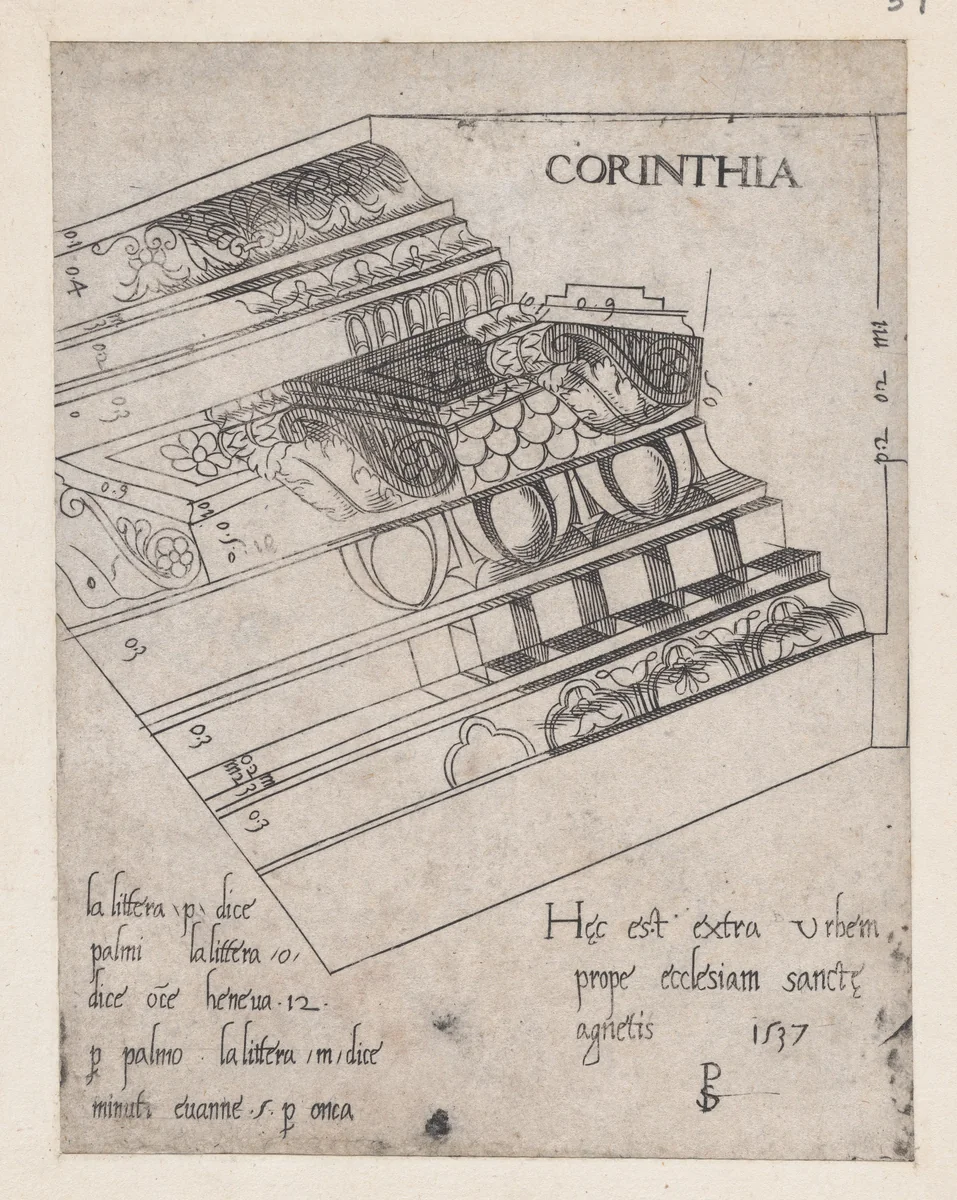 CORINTHIA
0.1
0.4
0.3
0.9
0.9
p.2 02 m1
0.3
0.3
0.2 m
m2 3
0.3
la littera \p\ dice
palmi la littera /o/
dice oc̄e heneua .12.
ꝑ palmo . la littera /m/ dice
minuti euanne .5. ꝑ onca
Hęc est extra Urbem
prope ecclesiam sanctę
agnetis 1537
PS